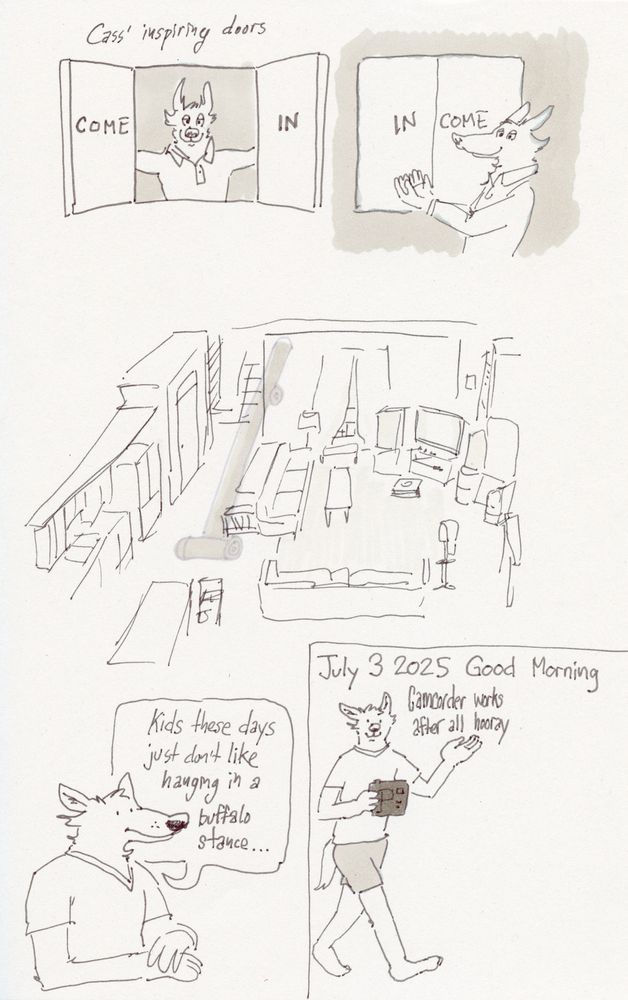 Cass' inspiring doors
COME IN
IN COME
July 3 2025 Good Morning
Camcorder works
after all hooray
Kids these days
just don't like
hanging in a
buffalo
stance...